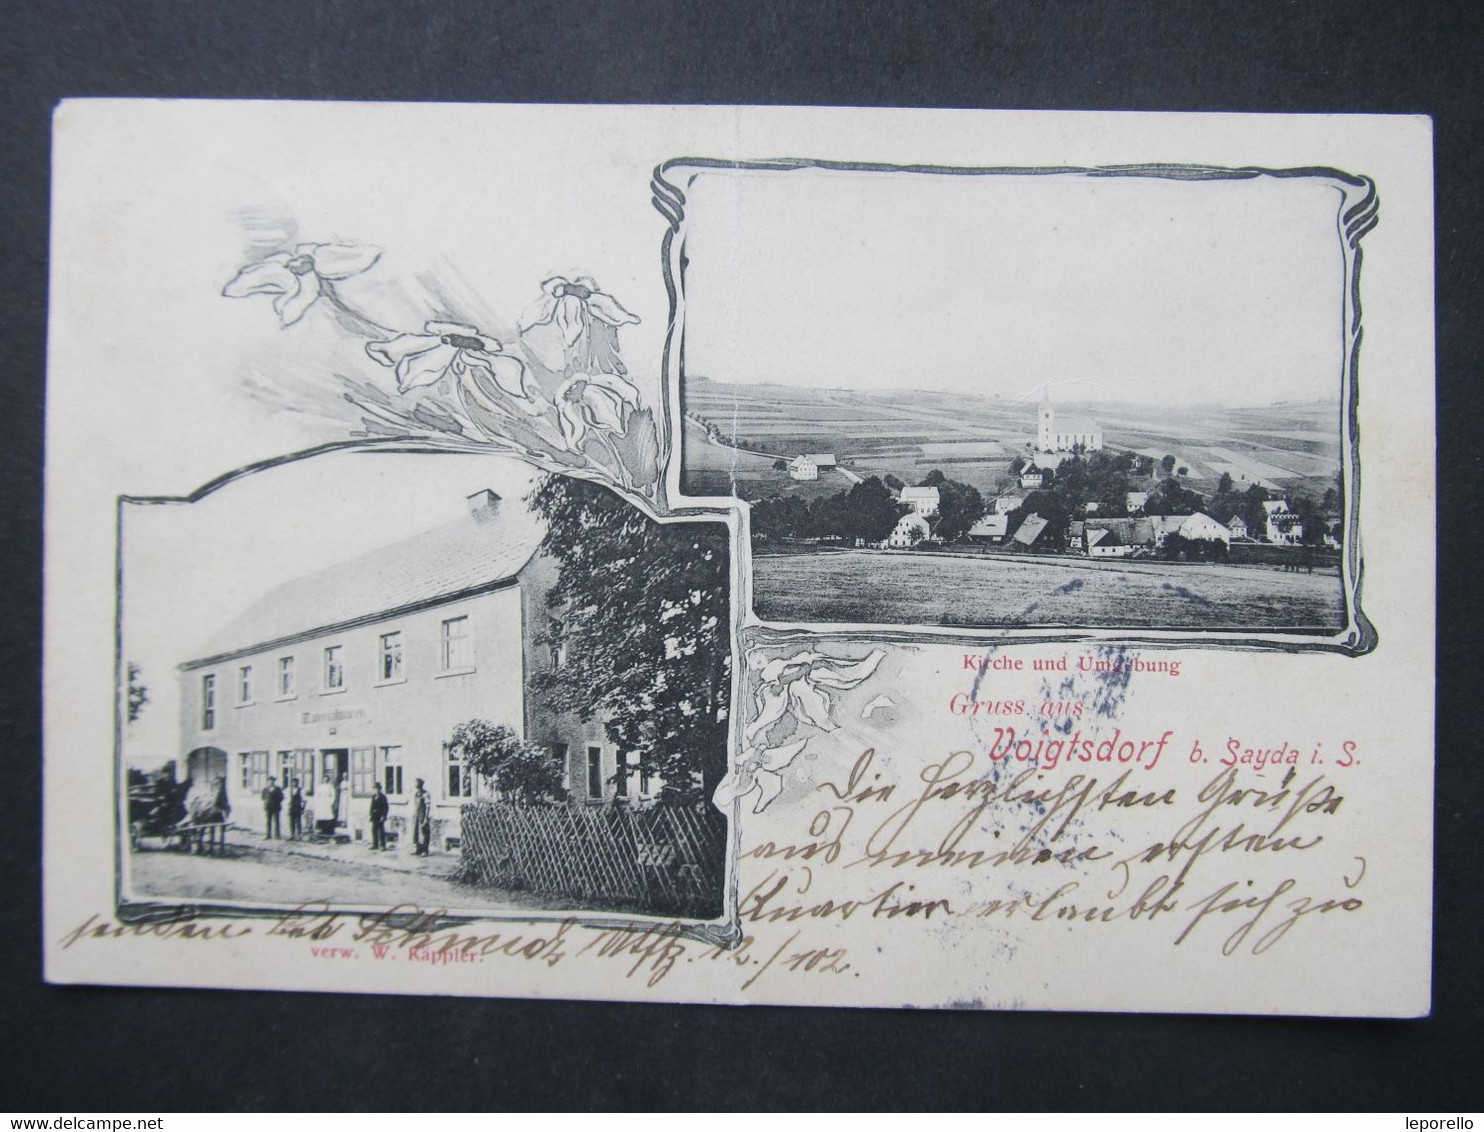 Kirche und Umgebung
Gruss aus
Voigtsdorf b. Sayda i. S.
Die herzlichsten Grüße
aus meinen ersten
Quartier erlaubt sich zu
senden Schmidt
verw. W. Käppler.
delcampe.net
leporello